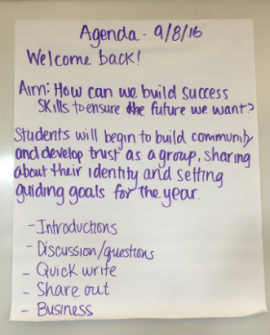 Agenda - 9/8/16
Welcome back!
Aim: How can we build success
skills to ensure the future we want?
Students will begin to build community
and develop trust as a group, sharing
about their identity and setting
guiding goals for the year.
- Introductions
- Discussion/questions
- Quick write
- Share out
- Business